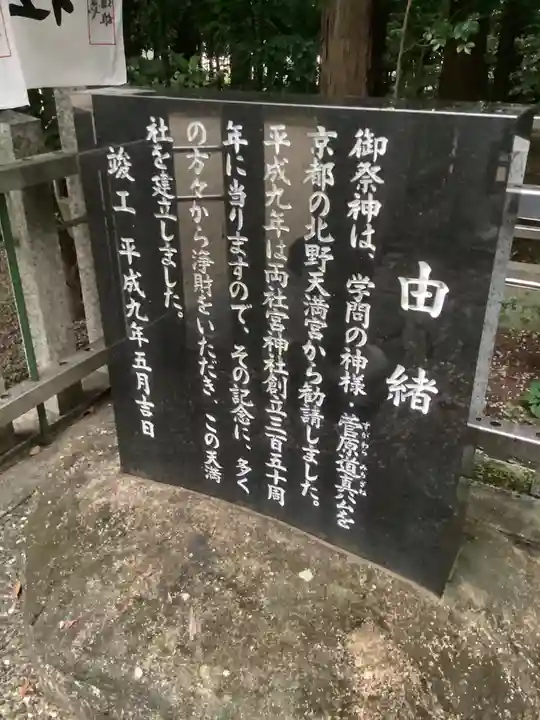 由緒
御祭神は、学問の神様・菅原道真公を
すがわら みちざね
京都の北野天満宮から勧請しました。
平成九年は両社宮神社創立三百五十周
年に当りますので、その記念に、多く
の方々から浄財をいただき、この天満
社を建立しました。
竣工 平成九年五月吉日